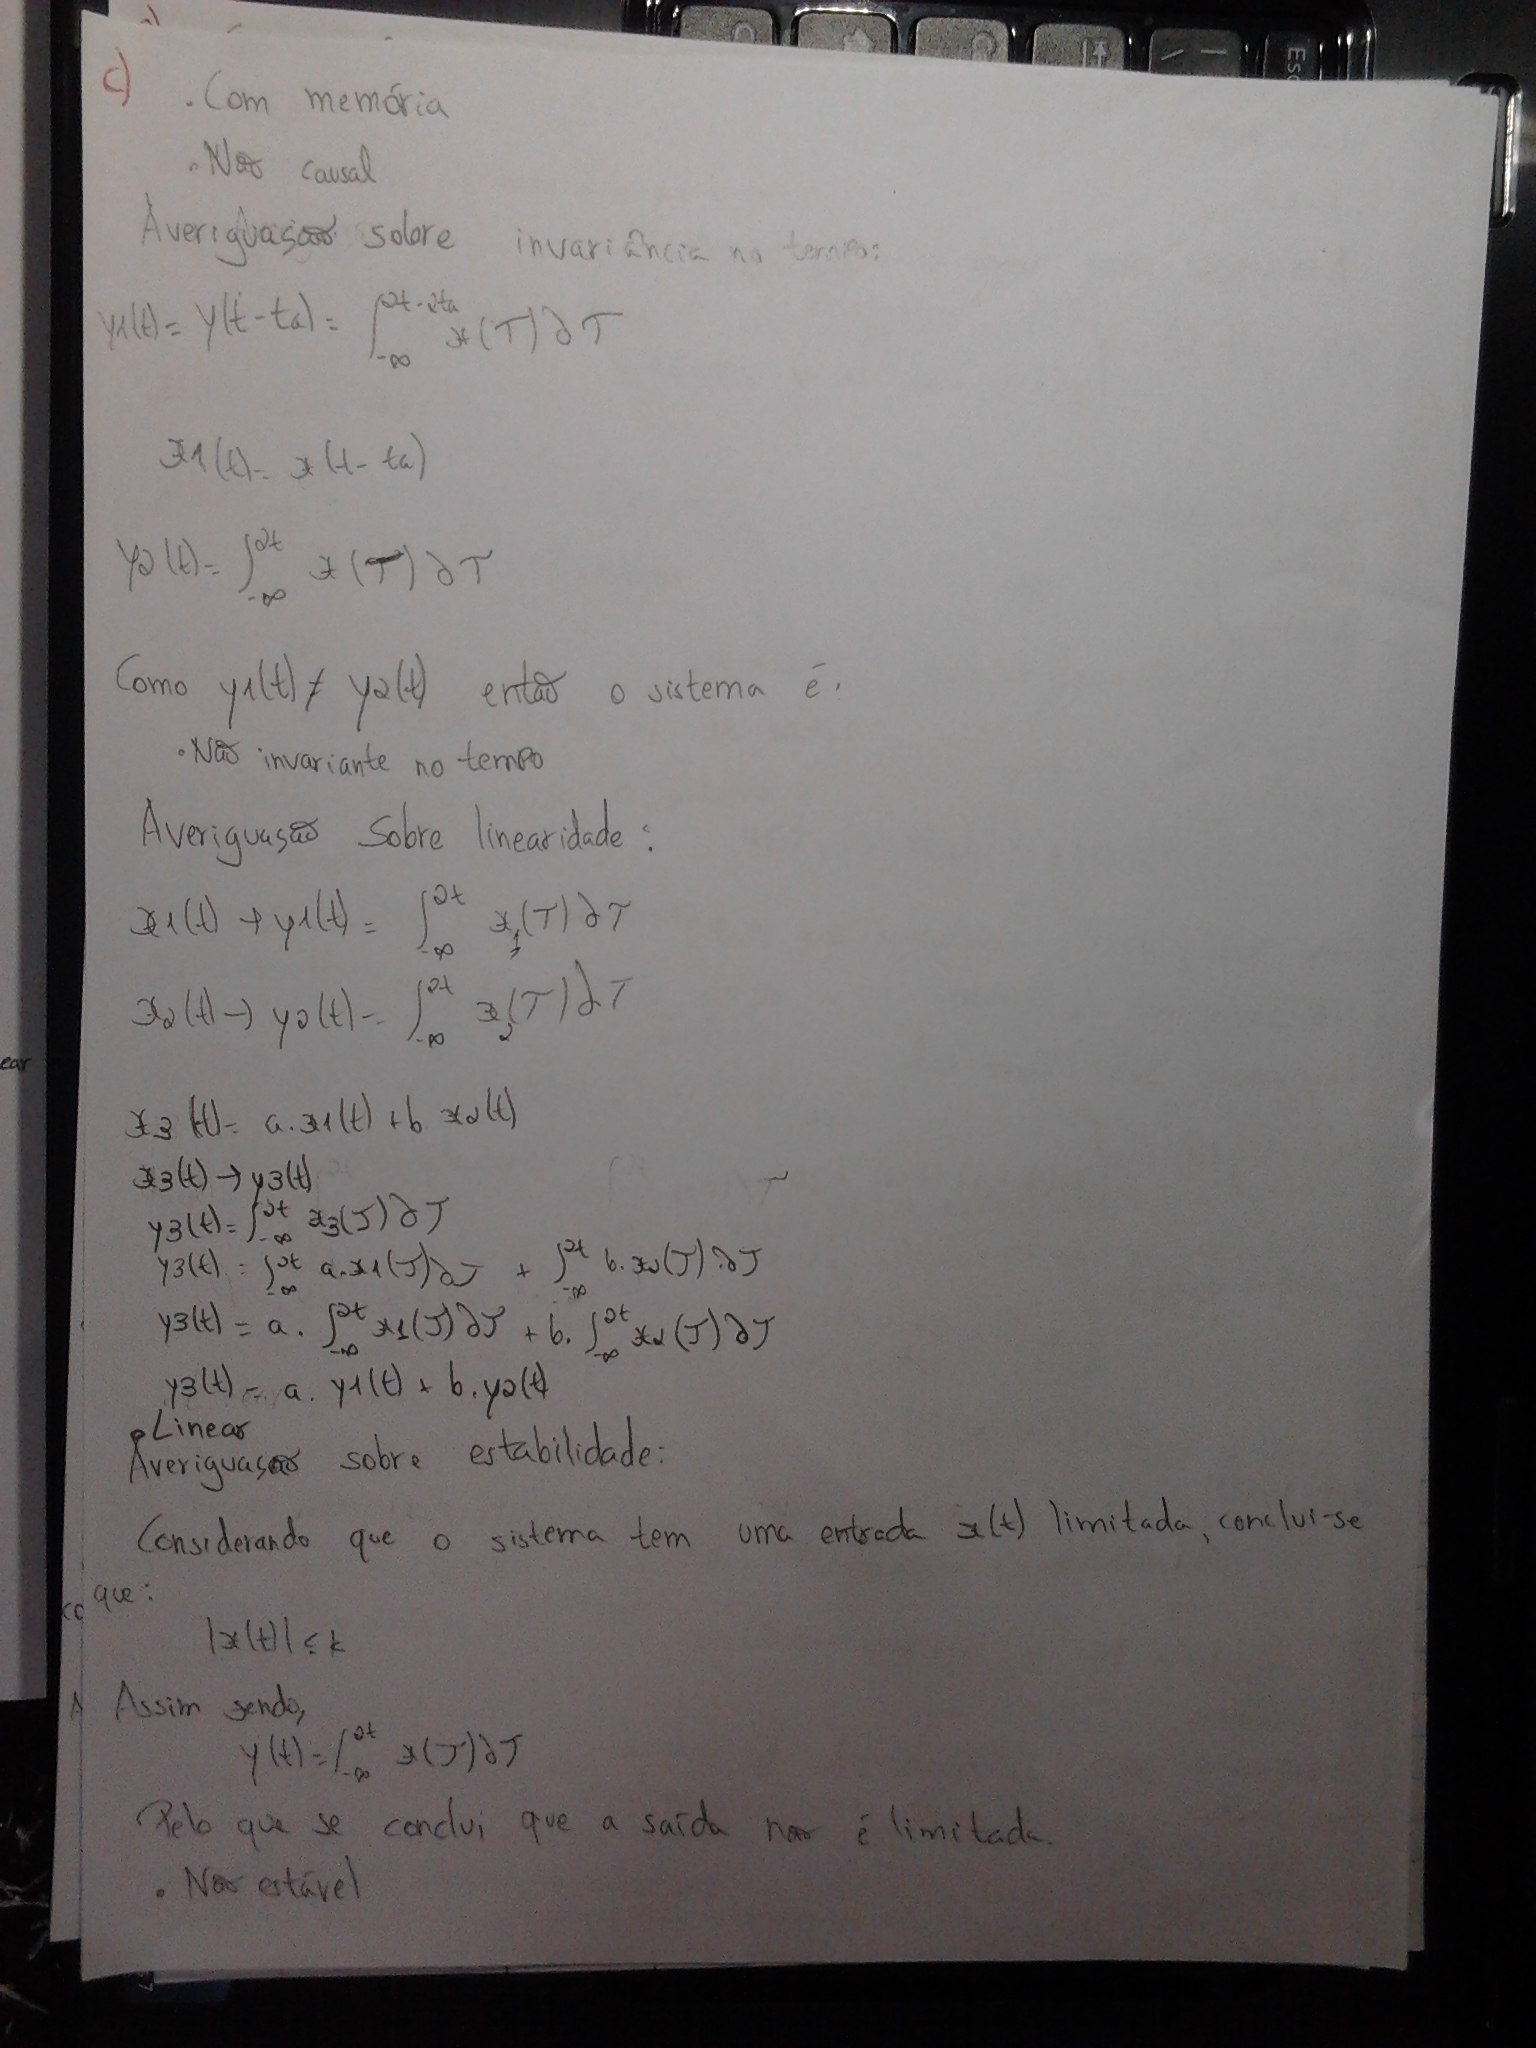 c)
. Com memória
. Não causal
Averiguação sobre invariância no tempo:
y1(t) = y(t-ta) = ∫_{-∞}^{2t-2ta} x(T) ∂T
x1(t) = x(t-ta)
y2(t) = ∫_{-∞}^{2t} x(T) ∂T
Como y1(t) ≠ y2(t) então o sistema é:
. Não invariante no tempo
Averiguação Sobre linearidade:
x1(t) → y1(t) = ∫_{-∞}^{2t} x1(T) ∂T
x2(t) → y2(t) = ∫_{-∞}^{2t} x2(T) ∂T
x3(t) = a.x1(t) + b x2(t)
x3(t) → y3(t)
y3(t) = ∫_{-∞}^{2t} x3(T) ∂T
y3(t) = ∫_{-∞}^{2t} a.x1(T) ∂T + ∫_{-∞}^{2t} b.x2(T) ∂T
y3(t) = a. ∫_{-∞}^{2t} x1(T) ∂T + b. ∫_{-∞}^{2t} x2(T) ∂T
y3(t) = a. y1(t) + b. y2(t)
. Linear
Averiguação sobre estabilidade:
Considerando que o sistema tem uma entrada x(t) limitada, conclui-se
que:
|x(t)| ≤ k
Assim sendo,
y(t) = ∫_{-∞}^{2t} x(T) ∂T
Pelo que se conclui que a saída não é limitada.
. Não estável
ear
Esc